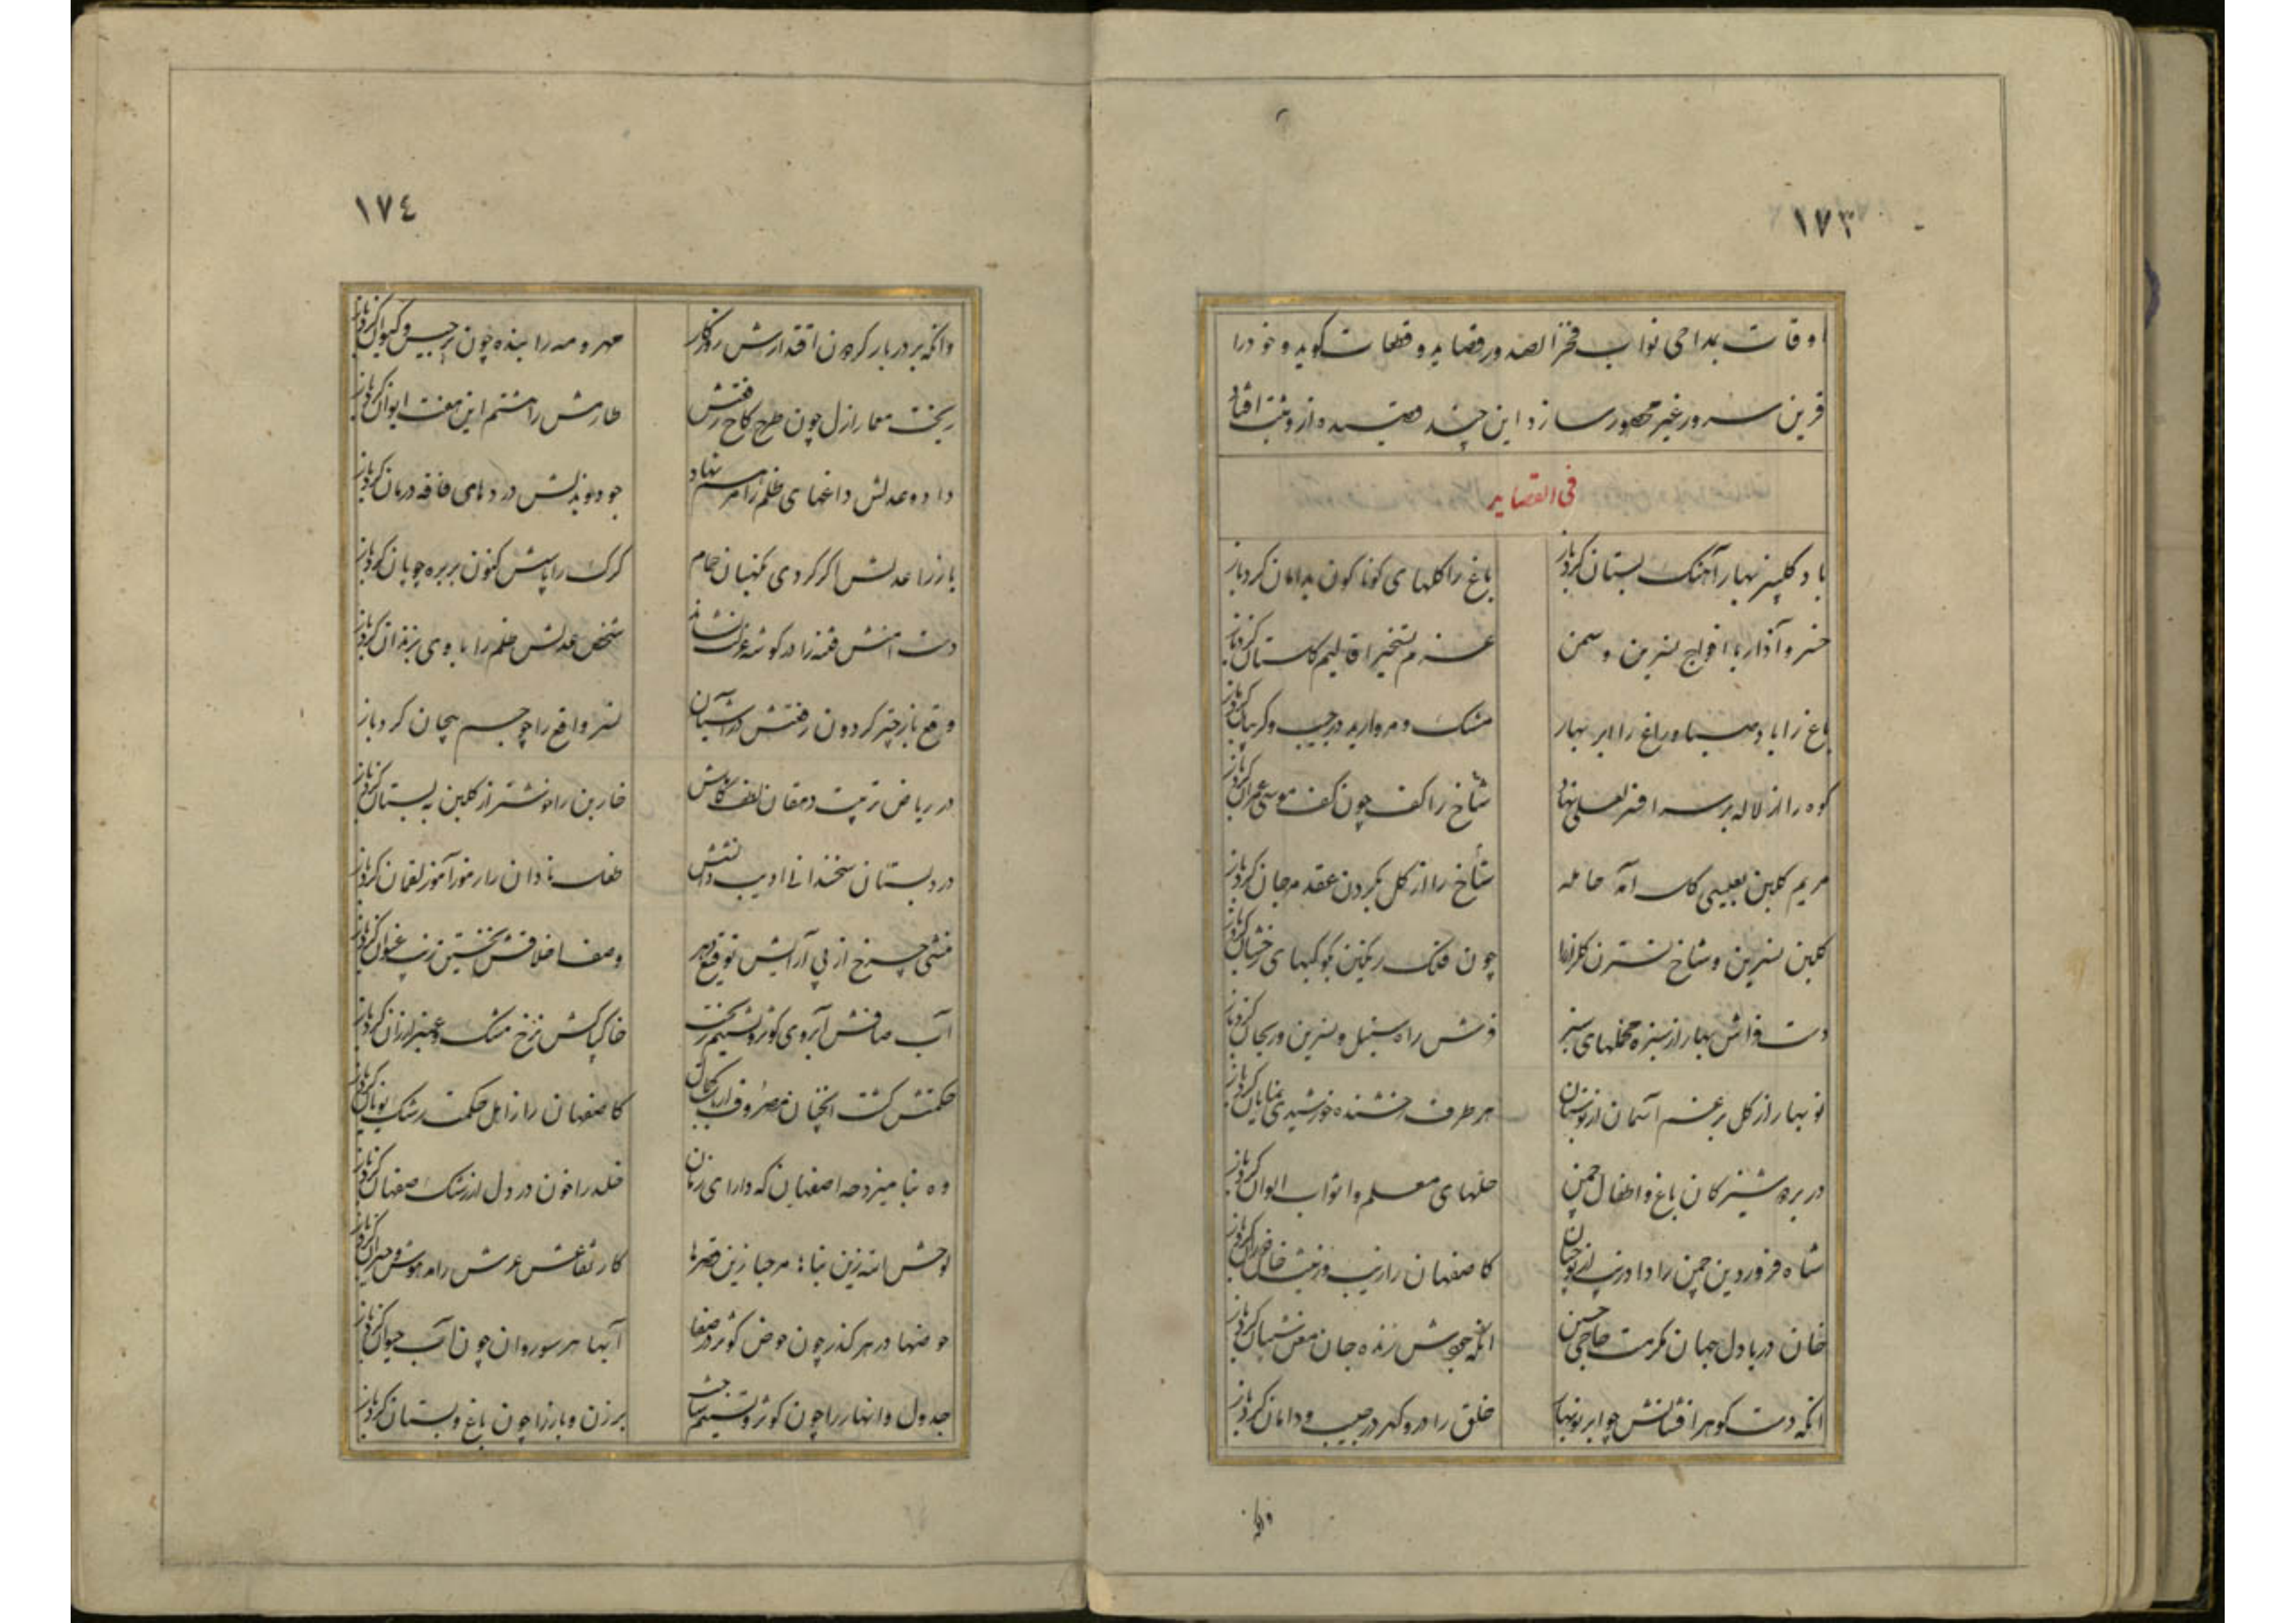 ١٧٣
اوقات بمداحی نواب فخر الصدور قصاید و قطعات کوید و خود را
قرین سرور غیر محصور سازد این چند قصیده ازو ثبت افتاد
فی القصاید
باد کلبیز بهار آهنک بستان کرد باز باغ را کلهای کونا کون بدامان کرد باز
خسرو آذار با افواج نسرین و سمن عزم تسخیر اقالیم کلستان کرد باز
باغ را باد صبا و راغ را ابر بهار مشک و مروارید در جیب و کریبان کرد باز
کوه را از لاله بر سر افسر لعلی نهاد شاخ را کف چون کف موسی عمران کرد باز
مریم کلبن بعیسی کل آمد حامله شاخ را از کل بکردن عقد مرجان کرد باز
کلبن نسرین و شاخ نسترن کلزار را چون فلک رنکین بکوکبهای رخشان کرد باز
دست فراش بهار از سبزه مخملهای سبز فرش راه سنبل و نسرین و ریحان کرد باز
نو بهار از کل برغم آسمان از بوستان هر طرف رخشنده خورشیدی نمایان کرد باز
در بر دوشیزکان باغ و اطفال چمن حلهای معلم و اثواب الوان کرد باز
شاه فروردین چمن را داد زیب
کاصفهان را زیب و زینت خان کرد باز
خان دریا دل جهان مکرمت حاجی حسین انکه جودش زنده جان معن شیبان کرد باز
انکه دست کوهر افشانش چو ابر نو بهار خلق را در و کهر در جیب و دامان کرد باز
وانکه
١٧٤
وانکه بر دربار کردون اقتدارش روزکار مهر و مه را بنده چون برجیس و کیوان کرد باز
ریخت معمار ازل چون طرح کاخ رفعتش طارمش را هشتم این هفت ایوان کرد باز
داد و عدلش داغهای ظلم را مرهم نهاد جود و بذلش دردهای فاقه درمان کرد باز
باز را عدلش اکر کردی نکهبان حمام کرک را پاسش کنون بر بره چوپان کرد باز
دست امنش فتنه را در کوشه عزلت نشاند شخص عدلش ظلم را بزندان کرد باز
وقع باز چتر کردون رفعتش در آشیان نسر واقع را چو جسم بیجان کرد باز
در ریاض تربیت دهقان لطف کاملش خار بن را خوشتر از کلبن به بستان کرد باز
در دبستان سخندانی ادیب دانشش طفل نادان را رموز آموز لقمان کرد باز
منشی چرخ از پی آرایش توقیع دهر وصف اخلاقش نخستین زیب عنوان کرد باز
آب صافش آبروی کوثر و تسنیم ریخت خاک پاکش نرخ مشک و عنبر ارزان کرد باز
حکمتش کشت انچنان مصروف ارباب کمال کاصفهان را از اهل حکمت رشک یونان کرد باز
وه بنامیزد صه اصفهان که دارای زمان خلد را خون در دل از رشک صفاهان کرد باز
لوحش الله زین بناها مرحبا زین قصرها کار نقاشش عرش را مدهوش و حیران کرد باز
حوضها در هر کذر چون حوض کوثر در صفا آبها هر سو روان چون آب حیوان کرد باز
جدول و انهار را چون کوثر و تسنیم ساخت برزن و بازار را چون باغ و بستان کرد باز